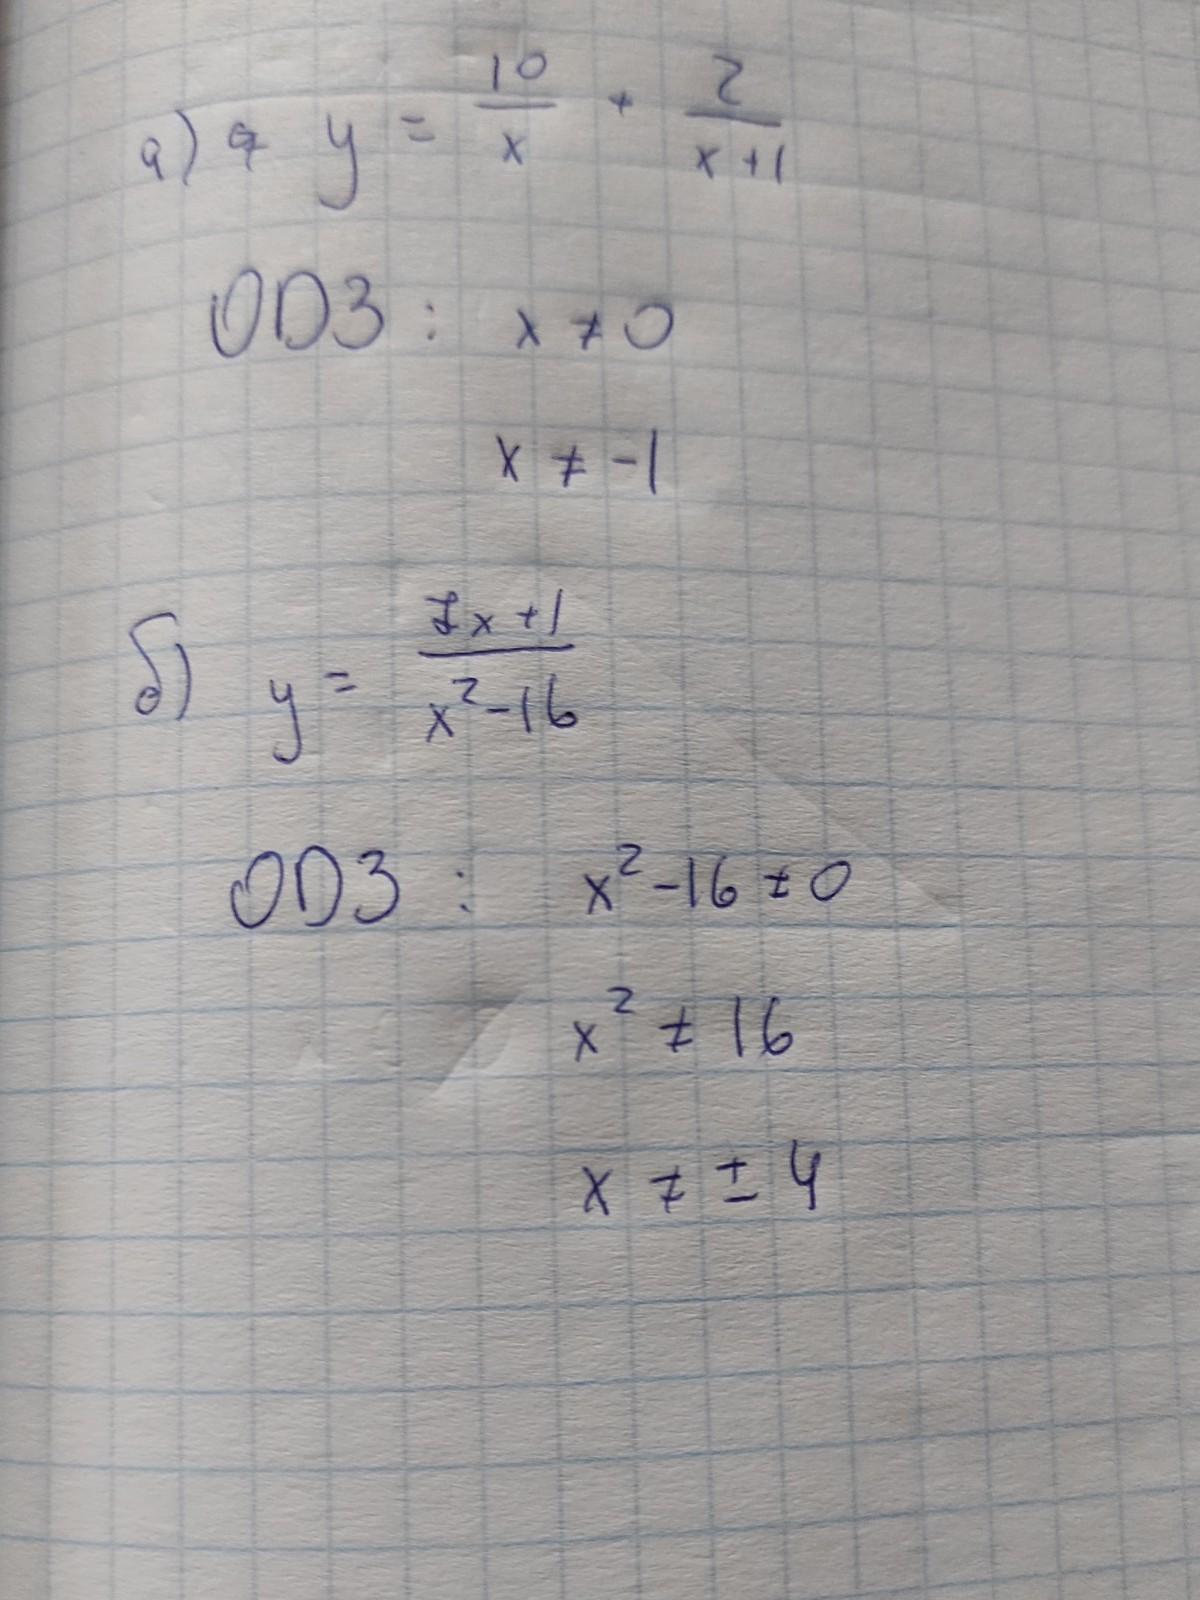 а) y = 10/x + 2/(x+1)
ОDЗ : x ≠ 0
x ≠ -1
б) y = (7x+1)/(x²-16)
ОDЗ : x²-16 ≠ 0
x² ≠ 16
x ≠ ± 4